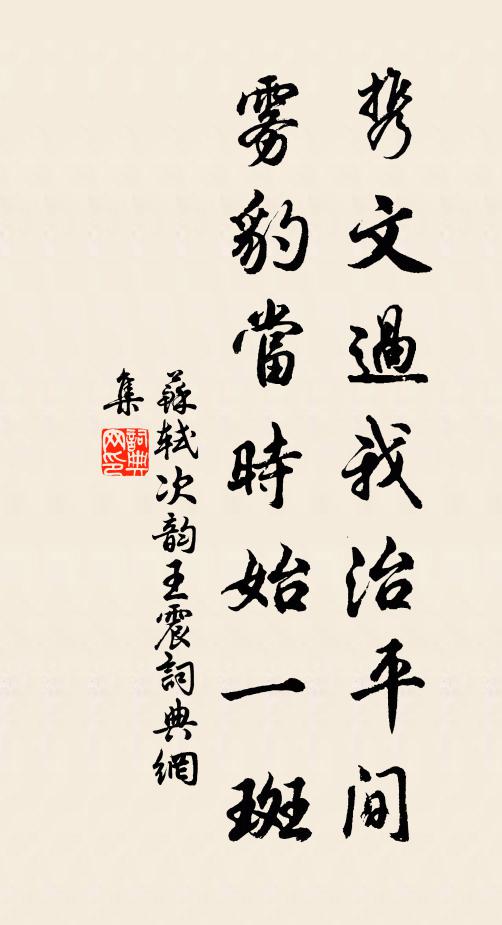 携文過我治平间
雾豹當時始一斑
蘇轼次韵王震詞典網
集
詞典网印